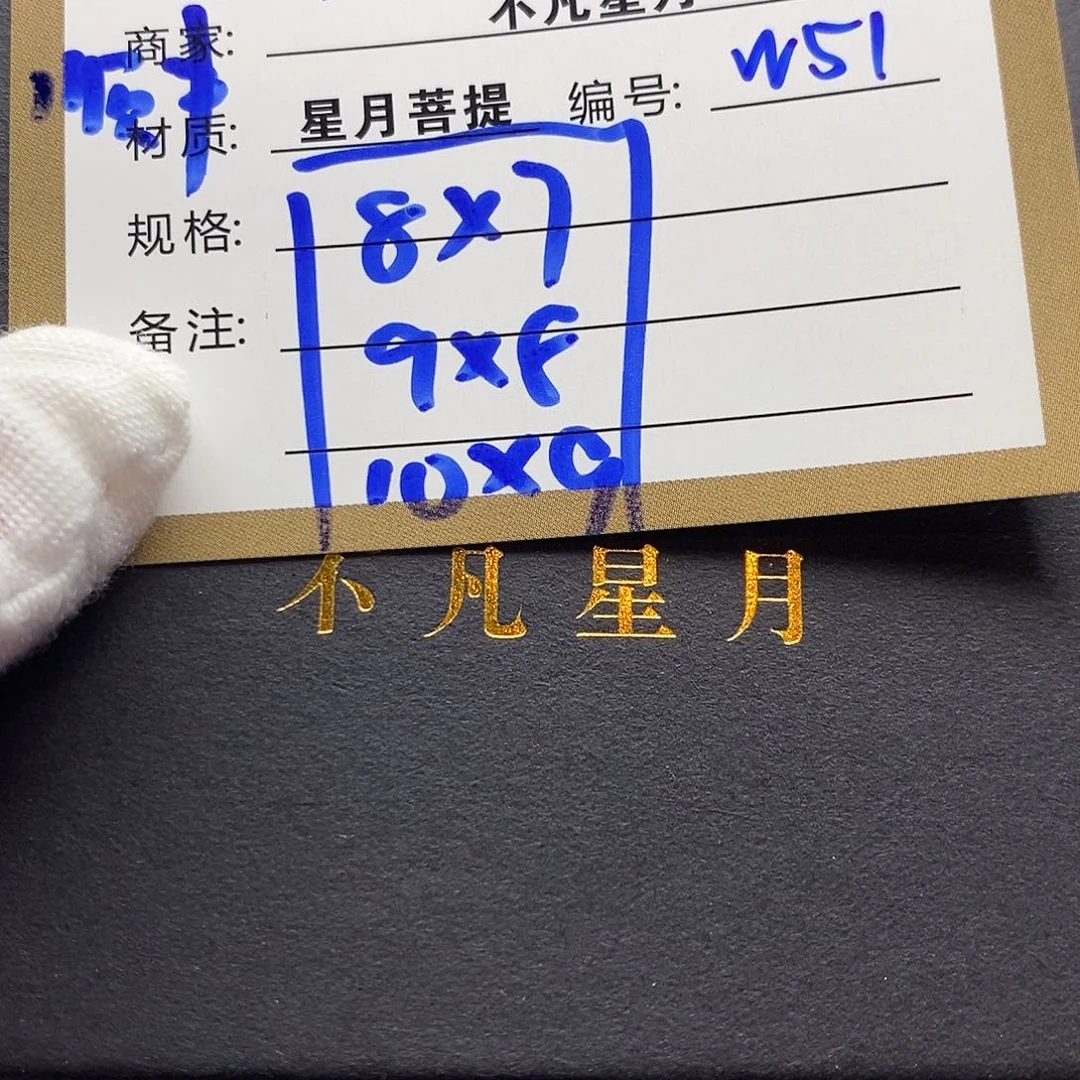 商家: 不凡星月
材质: 星月菩提 编号: W51
规格: 8×7
备注: 9×8
10×9
不凡星月